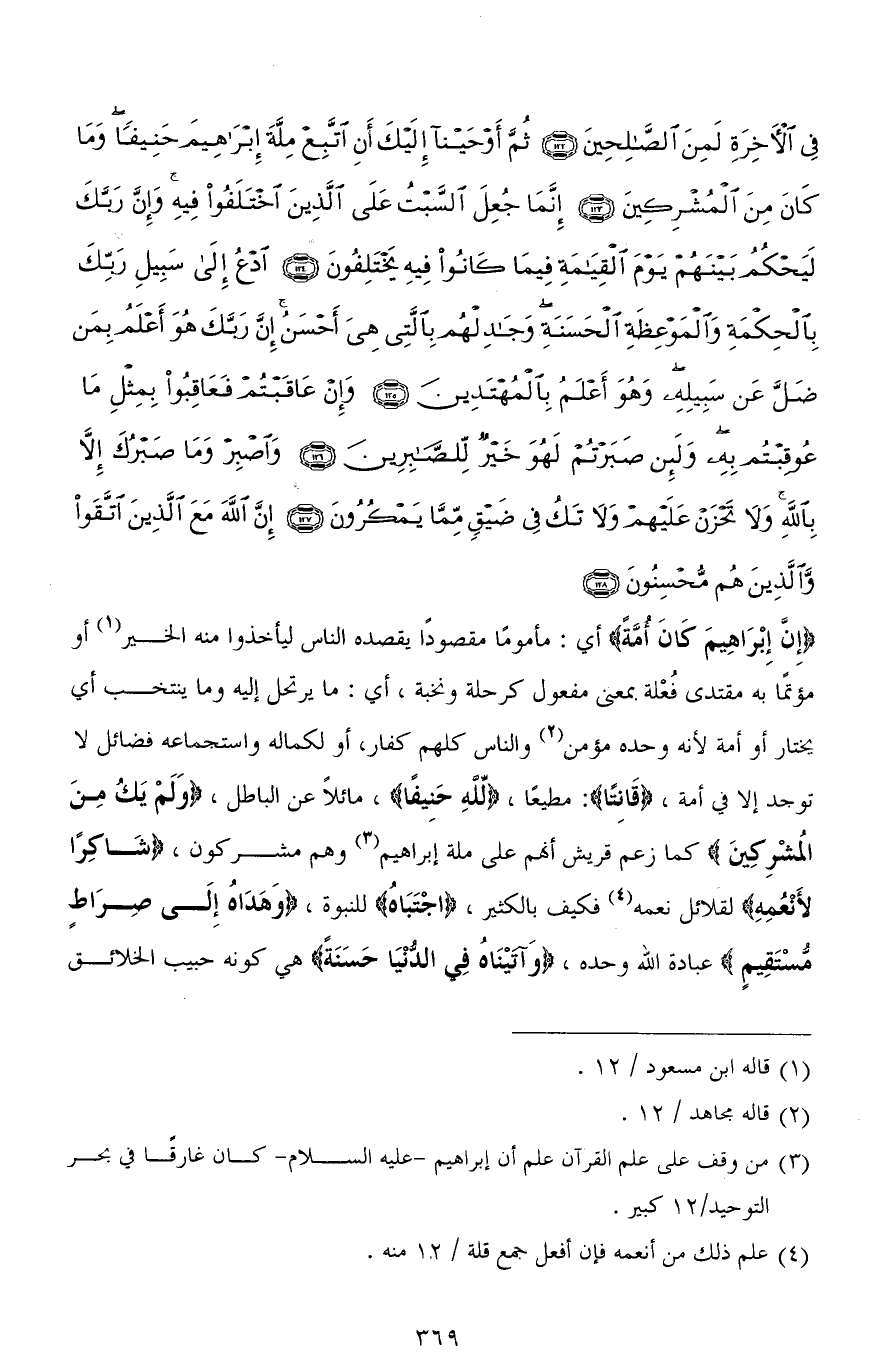 فِى ٱلْأَخِرَةِ لَمِنَ ٱلصَّـٰلِحِينَ ۝١٢٢ ثُمَّ أَوْحَيْنَآ إِلَيْكَ أَنِ ٱتَّبِعْ مِلَّةَ إِبْرَٰهِيمَ حَنِيفًا ۖ وَمَا
كَانَ مِنَ ٱلْمُشْرِكِينَ ۝١٢٣ إِنَّمَا جُعِلَ ٱلسَّبْتُ عَلَى ٱلَّذِينَ ٱخْتَلَفُوا۟ فِيهِ ۚ وَإِنَّ رَبَّكَ
لَيَحْكُمُ بَيْنَهُمْ يَوْمَ ٱلْقِيَـٰمَةِ فِيمَا كَانُوا۟ فِيهِ يَخْتَلِفُونَ ۝١٢٤ ٱدْعُ إِلَىٰ سَبِيلِ رَبِّكَ
بِٱلْحِكْمَةِ وَٱلْمَوْعِظَةِ ٱلْحَسَنَةِ ۖ وَجَـٰدِلْهُم بِٱلَّتِى هِىَ أَحْسَنُ ۚ إِنَّ رَبَّكَ هُوَ أَعْلَمُ بِمَن
ضَلَّ عَن سَبِيلِهِۦ ۖ وَهُوَ أَعْلَمُ بِٱلْمُهْتَدِينَ ۝١٢٥ وَإِنْ عَاقَبْتُمْ فَعَاقِبُوا۟ بِمِثْلِ مَا
عُوقِبْتُم بِهِۦ ۖ وَلَئِن صَبَرْتُمْ لَهُوَ خَيْرٌ لِّلصَّـٰبِرِينَ ۝١٢٦ وَٱصْبِرْ وَمَا صَبْرُكَ إِلَّا
بِٱللَّهِ ۚ وَلَا تَحْزَنْ عَلَيْهِمْ وَلَا تَكُ فِى ضَيْقٍ مِّمَّا يَمْكُرُونَ ۝١٢٧ إِنَّ ٱللَّهَ مَعَ ٱلَّذِينَ ٱتَّقَوا۟
وَّٱلَّذِينَ هُم مُّحْسِنُونَ ۝١٢٨
﴿إِنَّ إِبْرَاهِيمَ كَانَ أُمَّةً﴾ أي : مأمومًا مقصودًا يقصده الناس ليأخذوا منه الخـــير(١) أو
مؤتمًا به مقتدى فُعْلة بمعنى مفعول كرحلة ونخبة ، أي : ما يرتحل إليه وما ينتخـــب أي
يختار أو أمة لأنه وحده مؤمن(٢) والناس كلهم كفار، أو لكماله واستجماعه فضائل لا
توجد إلا في أمة ، ﴿قَانِتًا﴾: مطيعًا ، ﴿لِّلَّهِ حَنِيفًا﴾ ، مائلاً عن الباطل ، ﴿وَلَمْ يَكُ مِـنَ
الْمُشْرِكِينَ ﴾ كما زعم قريش أنهم على ملة إبراهيم(٣) وهم مشـــركون ، ﴿شَـــاكِرًا
لأَنْعُمِهِ﴾ لقلائل نعمه(٤) فكيف بالكثير ، ﴿اجْتَبَاهُ﴾ للنبوة ، ﴿وَهَدَاهُ إِلَـــى صِـــرَاطٍ
مُّسْتَقِيمٍ ﴾ عبادة الله وحده ، ﴿وَآتَيْنَاهُ فِي الدُّنْيَا حَسَنَةً﴾ هي كونه حبيب الخلائـــق
(١) قاله ابن مسعود / ١٢ .
(٢) قاله مجاهد / ١٢ .
(٣) من وقف على علم القرآن علم أن إبراهيم -عليه الســـلام- كـــان غارقًـــا في بحـــر
التوحيد/١٢ كبير .
(٤) علم ذلك من أنعمه فإن أفعل جمع قلة / ١٢ منه .
٣٦٩